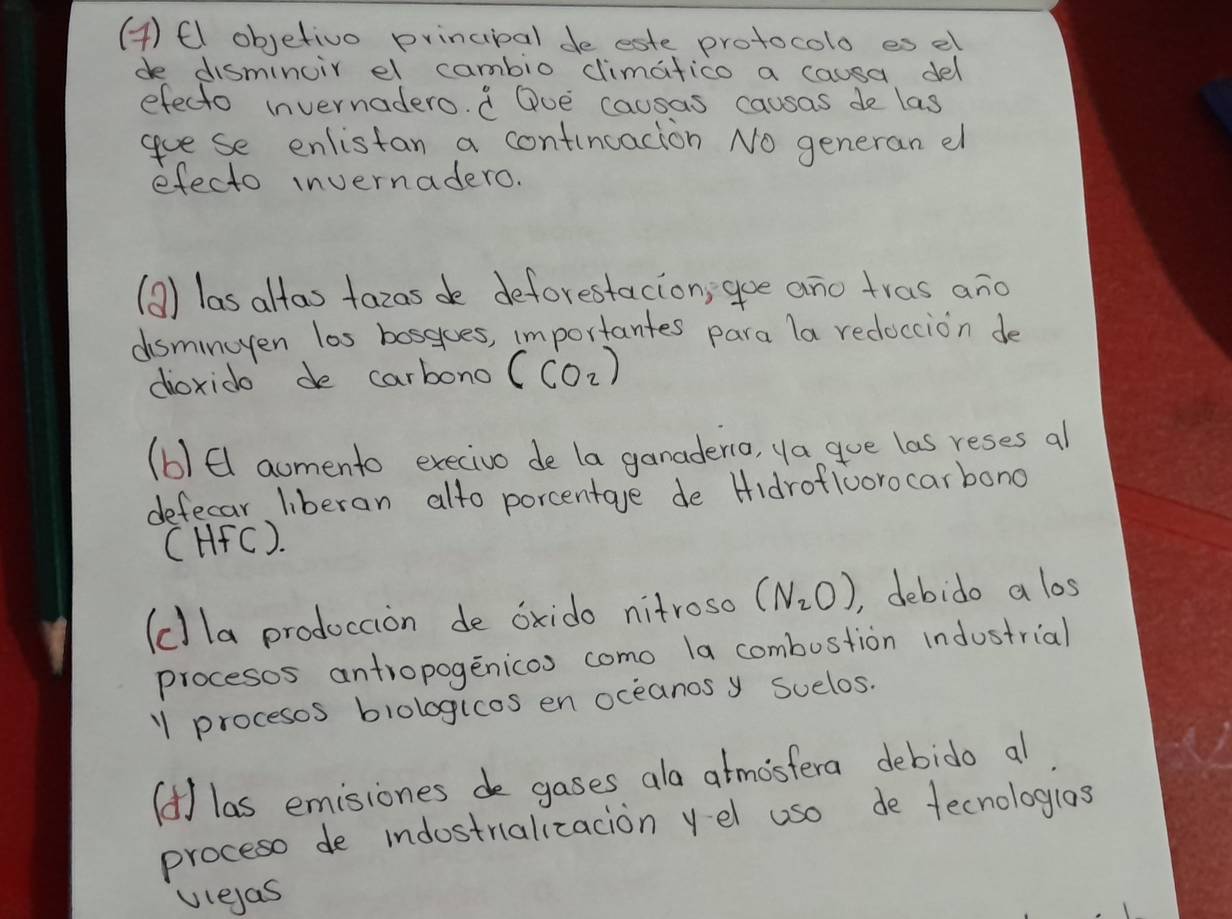 (7) El objetivo principal de este protocolo es el
de disminuir el cambio climático a causa del
efecto invernadero. ¿ Qué causas causas de las
que se enlistan a continuación NO generan el
efecto invernadero.
(a) las altas tazas de deforestación, que año tras año
disminuyen los bosques, importantes para la reducción de
dioxido de carbono (CO₂)
(b) El aumento execivo de la ganaderia, ya que las reses al
defecar liberan alto porcentaje de Hidrofluorocarbono
(HFC).
(c) la producción de óxido nitroso (N₂O), debido a los
procesos antropogénicos como la combustión industrial
y procesos biologicos en océanos y suelos.
(d) las emisiones de gases ala atmósfera debido al
proceso de industrialización y el uso de tecnologias
viejas